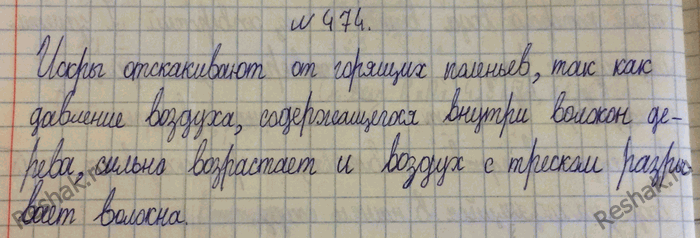 №474.
Искры отскакивают от горящих поленьев, так как
давление воздуха, содержащегося внутри волокон де-
рева, сильно возрастает и воздух с треском разры-
вает волокна.
Reshak.ru
Reshak.ru